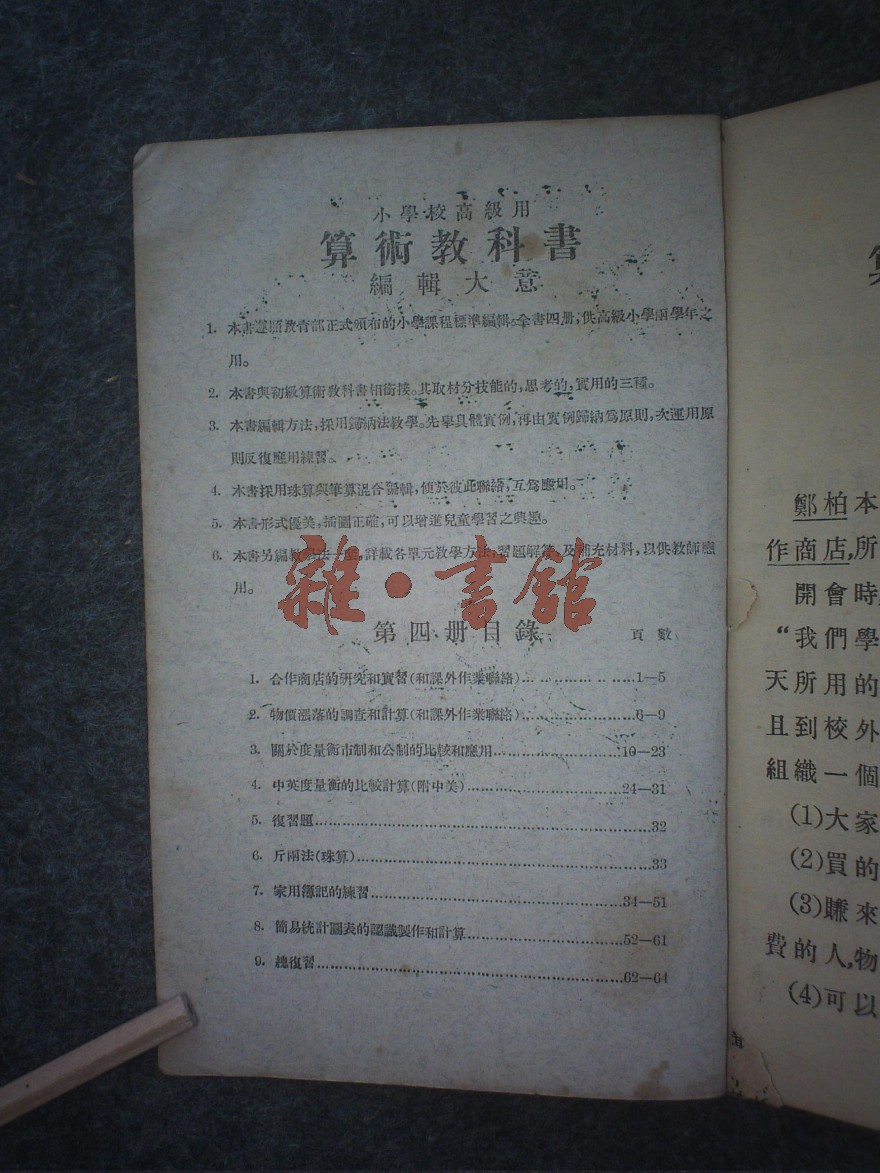 小學校高級用
算術教科書
編輯大意
1. 本書遵照教育部正式頒布的小學課程標準編輯。全書四册,供高級小學兩學年之
用。
2. 本書與初級算術教科書相銜接。其取材分技能的,思考的,實用的三種。
3. 本書編輯方法,採用歸納法教學。先舉具體實例,再由實例歸納爲原則,次運用原
則反復應用練習。
4. 本書採用珠算與筆算混合編輯,便於彼此聯絡,互爲應用。
5. 本書形式優美,插圖正確,可以增進兒童學習之興趣。
6. 本書另編教學法一册,詳載各單元教學方法,習題解答,及補充材料,以供教師應
用。
雜·書館
第四册目錄 頁數
1. 合作商店的研究和實習(和課外作業聯絡)……1—5
2. 物價漲落的調查和計算(和課外作業聯絡)……6—9
3. 關於度量衡市制和公制的比較和應用……10—23
4. 中英度量衡的比較計算(附中美)……24—31
5. 復習題……32
6. 斤兩法(珠算)……33
7. 家用簿記的練習……34—51
8. 簡易統計圖表的認識製作和計算……52—61
9. 總復習……62—64
鄭柏本
作商店,所
開會時,
“我們學
天所用的
且到校外
組織一個
(1)大家
(2)買的
(3)賺來
費的人,物
(4)可以